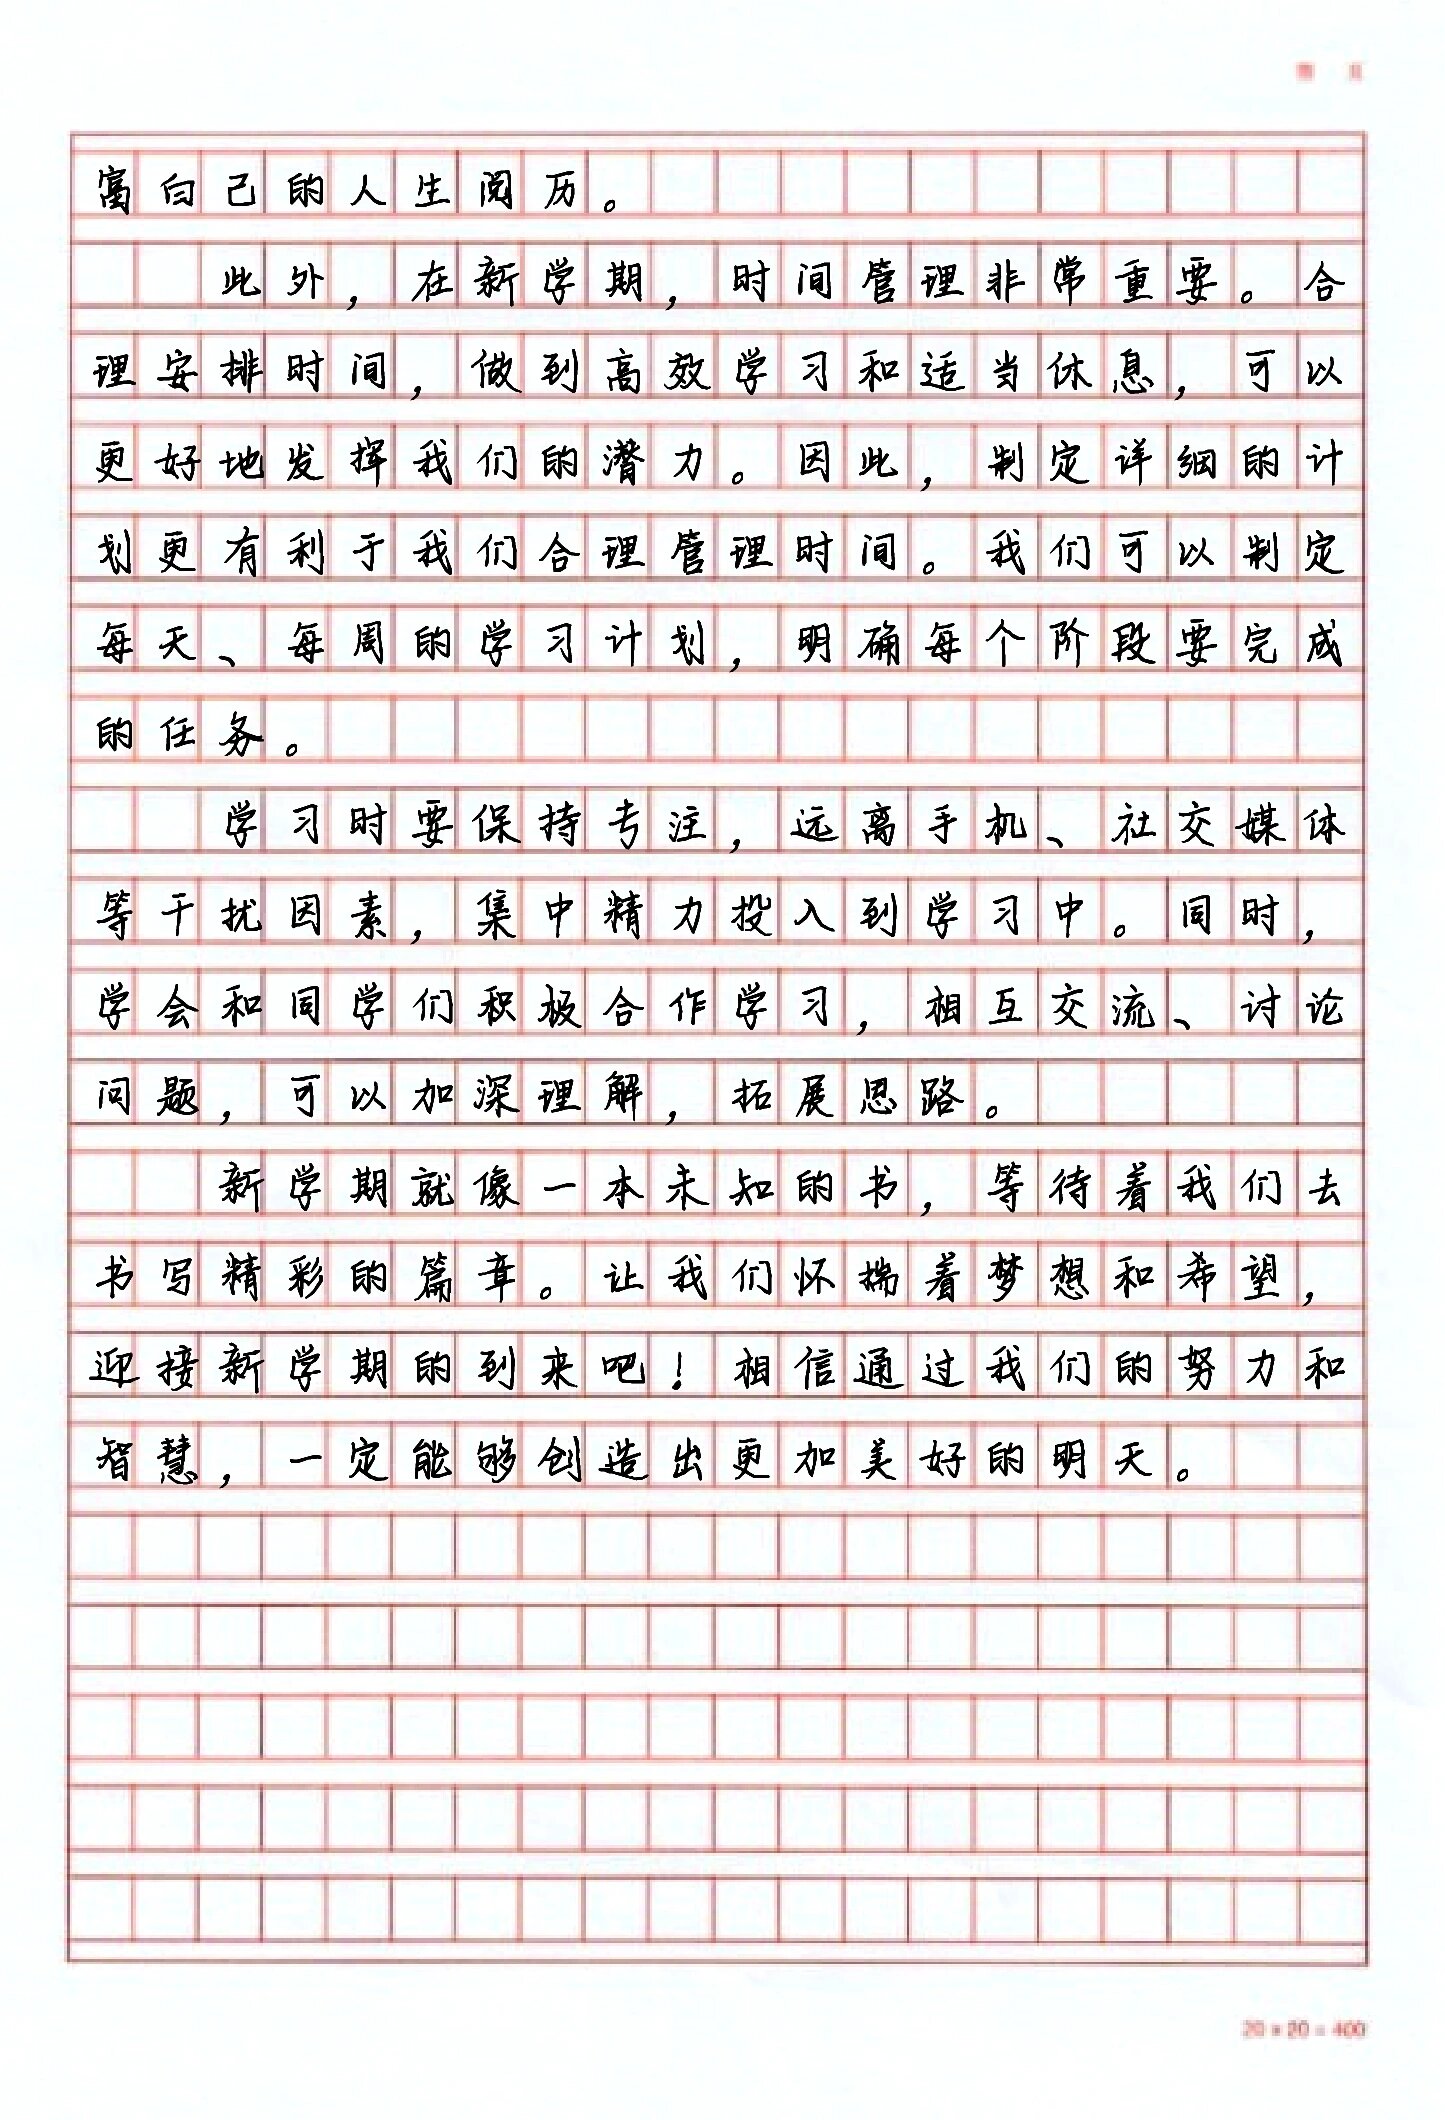 富自己的人生阅历。
此外，在新学期，时间管理非常重要。合
理安排时间，做到高效学习和适当休息，可以
更好地发挥我们的潜力。因此，制定详细的计
划更有利于我们合理管理时间。我们可以制定
每天、每周的学习计划，明确每个阶段要完成
的任务。
学习时要保持专注，远离手机、社交媒体
等干扰因素，集中精力投入到学习中。同时，
学会和同学们积极合作学习，相互交流、讨论
问题，可以加深理解，拓展思路。
新学期就像一本未知的书，等待着我们去
书写精彩的篇章。让我们怀揣着梦想和希望，
迎接新学期的到来吧！相信通过我们的努力和
智慧，一定能够创造出更加美好的明天。
20×20=400